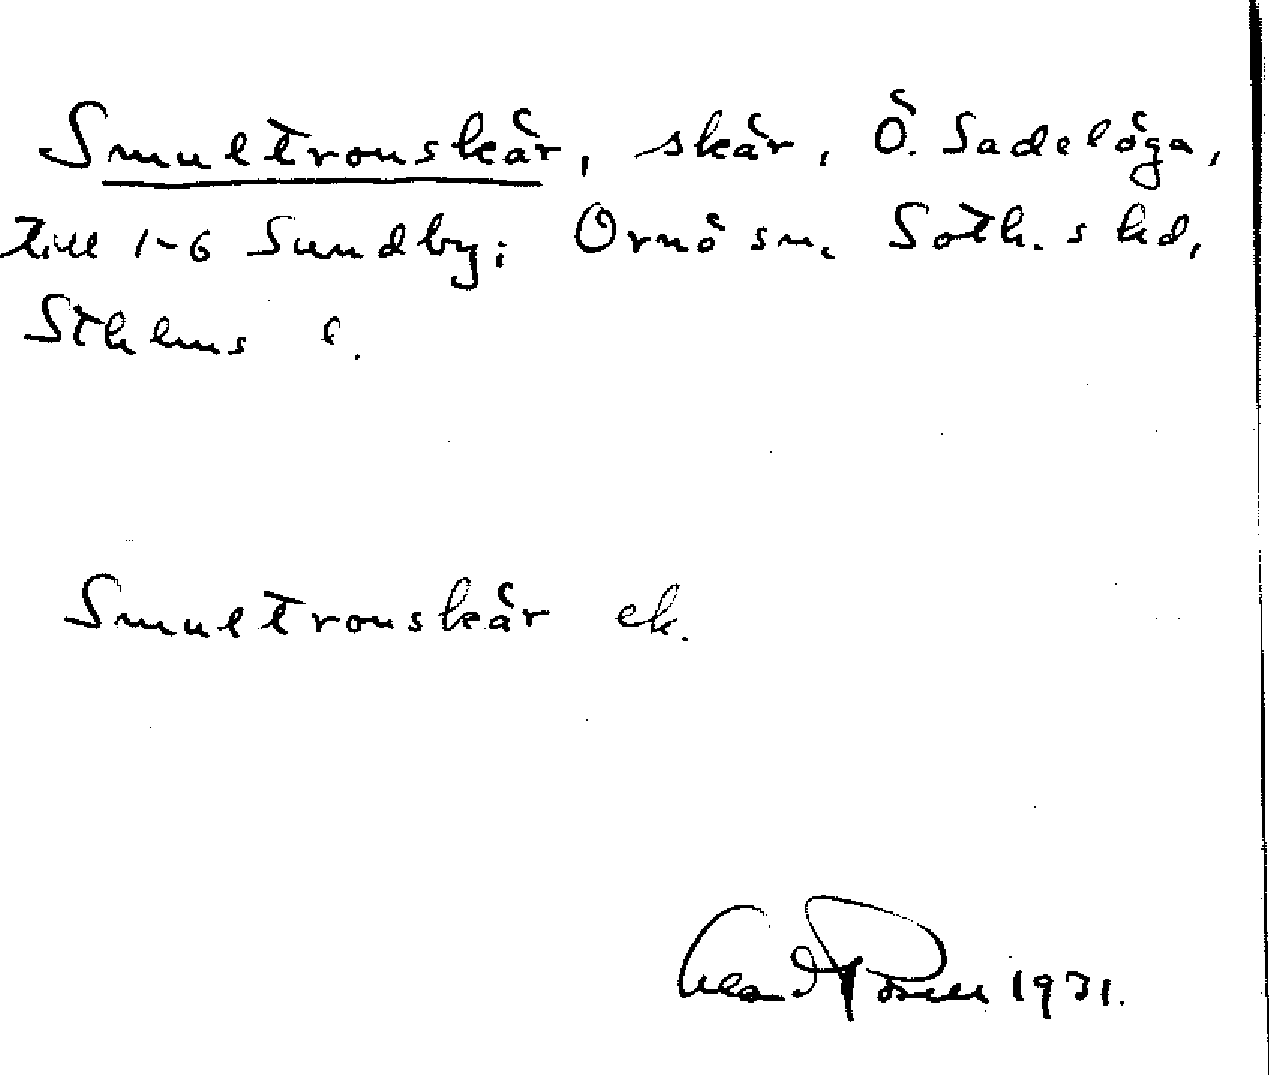 Smultronskär, skär, Ö. Sadelöga,
till 1-6 Sundby; Ornö sn. Soth. s hd,
Sthlms l.
Smultronskär ek.
1931.